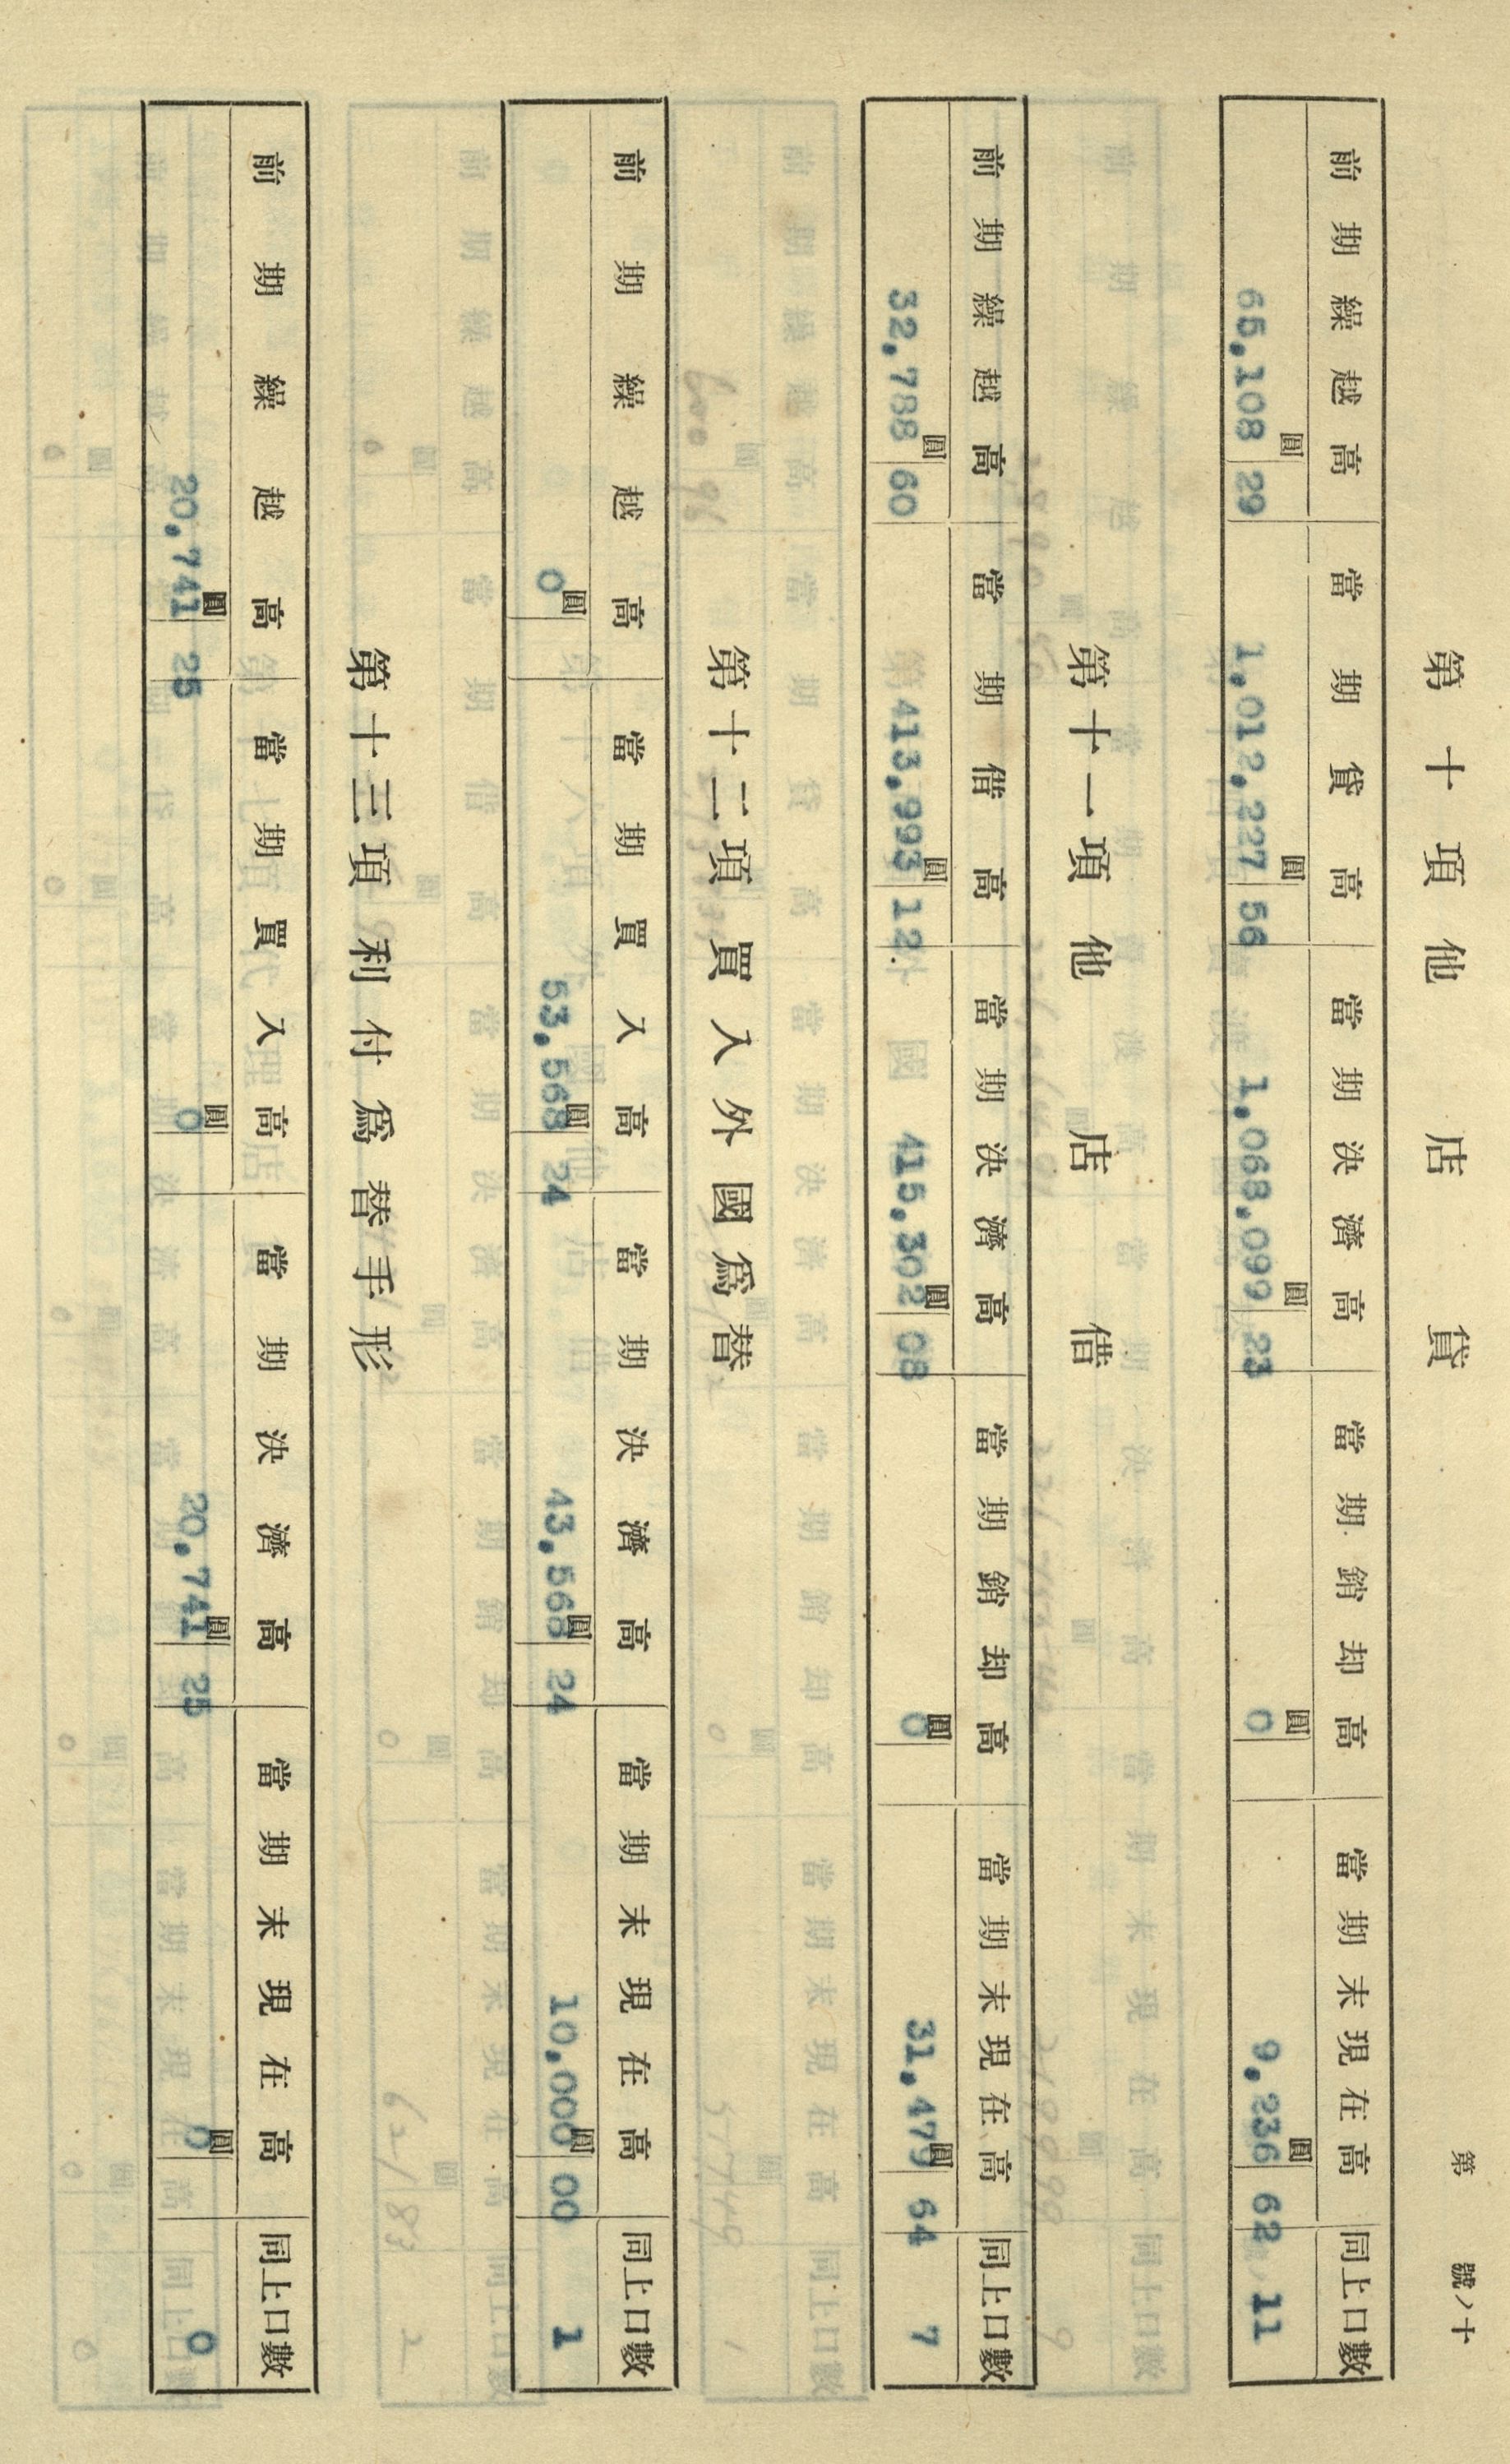 第　號ノ十
第十項 他店貸
前期繰越高 當期貸高 當期決濟高 當期銷却高 當期末現在高 同上口數
圓 圓 圓 圓 圓
65,108 29 1,012,227 56 1,068,099 23 0 9,236 62 11
第十一項 他店借
前期繰越高 當期借高 當期決濟高 當期銷却高 當期末現在高 同上口數
圓 圓 圓 圓 圓
32,788 60 413,993 12 415,302 08 0 31,479 64 7
第十二項 買入外國爲替
前期繰越高 當期買入高 當期決濟高 當期末現在高 同上口數
圓 圓 圓 圓
0 53,568 24 43,568 24 10,000 00 1
第十三項 利付爲替手形
前期繰越高 當期買入高 當期決濟高 當期末現在高 同上口數
圓 圓 圓 圓
20,741 25 0 20,741 25 0 0